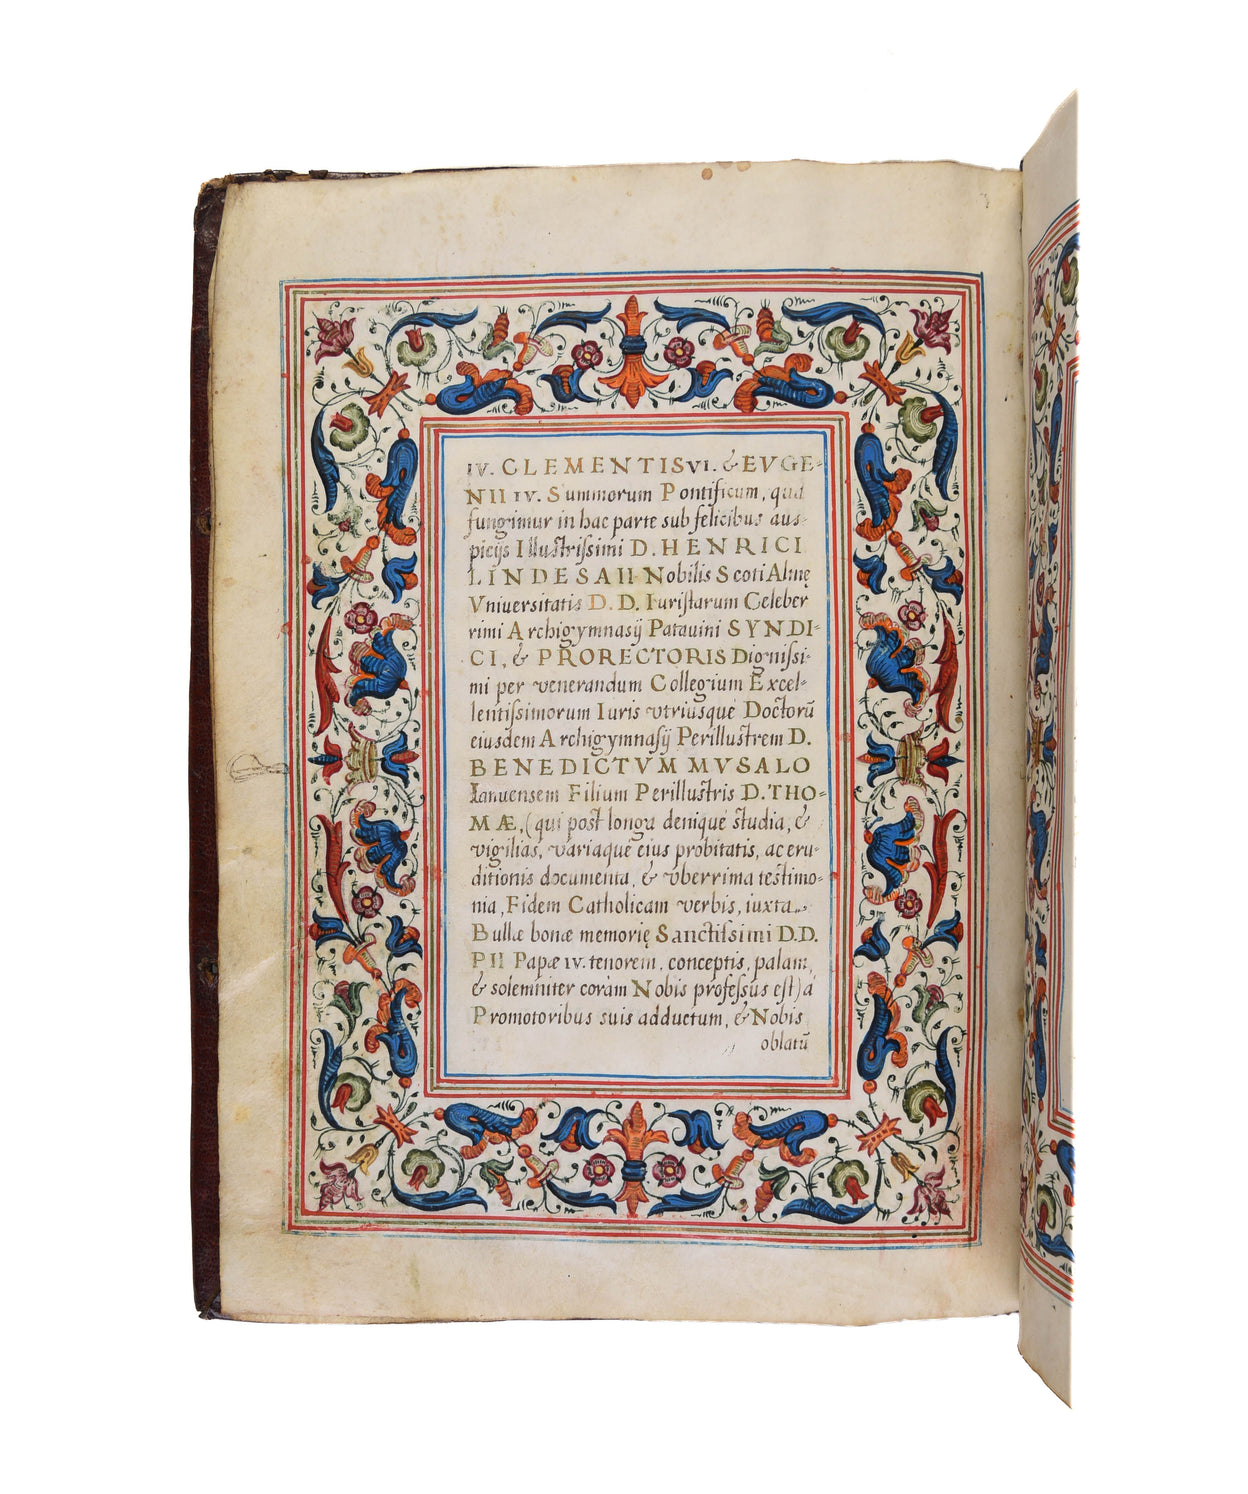 IV. CLEMENTIS VI. & EVGE-
NII IV. Summorum Pontificum, qua
fungimur in hac parte sub felicibus aus-
picijs Illustrissimi D. HENRICI
LINDESAII Nobilis Scoti Almę
Vniuersitatis D. D. Iuristarum Celeber
rimi Archigymnasij Patauini SYNDI-
CI, & PRORECTORIS Dignissi-
mi per venerandum Collegium Excel-
lentissimorum Iuris vtriusque Doctorū
eiusdem Archigymnasij Perillustrem D.
BENEDICTVM MVSALO
Ianuensem Filium Perillustris D. THO-
MÆ, (qui post longa denique studia, &
vigilias, variaque eius probitatis, ac eru-
ditionis documenta, & vberrima testimo-
nia, Fidem Catholicam verbis, iuxta
Bullæ bonæ memorię Sanctissimi D.D.
PII Papæ IV. tenorem, conceptis, palam,
& solemniter coram Nobis professus est) a
Promotoribus suis adductum, & Nobis
oblatū